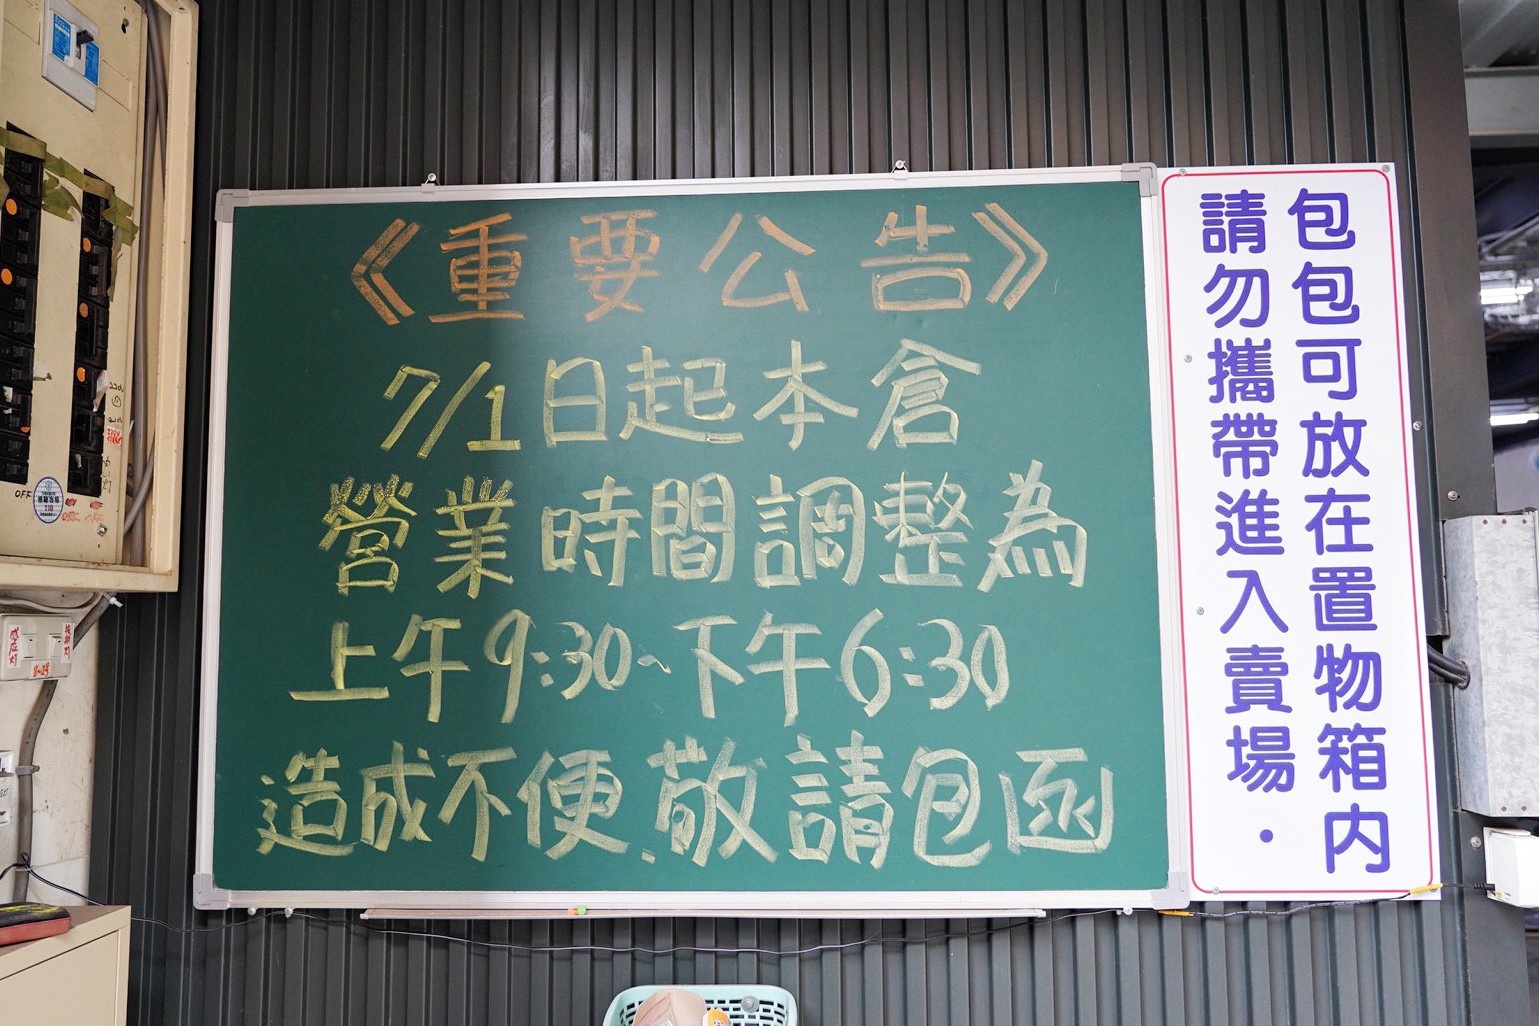 《重要公告》
7/1日起本倉
營業時間調整為
上午9:30~下午6:30
造成不便.敬請包函
包包可放在置物箱內
請勿攜帶進入賣場.
OFF
110